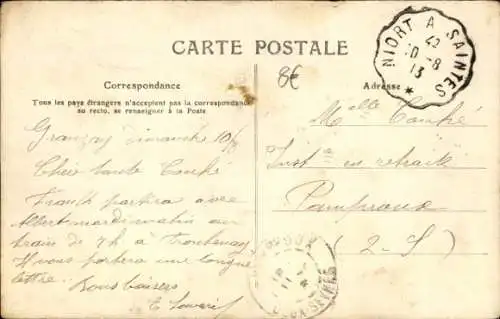 CARTE POSTALE
8€
NIORT A SAINTES
10-8
13
Correspondance
Adresse
Tous les pays étrangers n'acceptent pas la correspondance
au recto, se renseigner à la Poste
dimanche 10/8
Chère tante
partira avec
Albert mardi matin au
train de 7h à
Il vous portera une longue
lettre.
Bons baisers
E.
Melle
Inst en retraite
Pamproux
(2-S)
DEUX-SEVRES